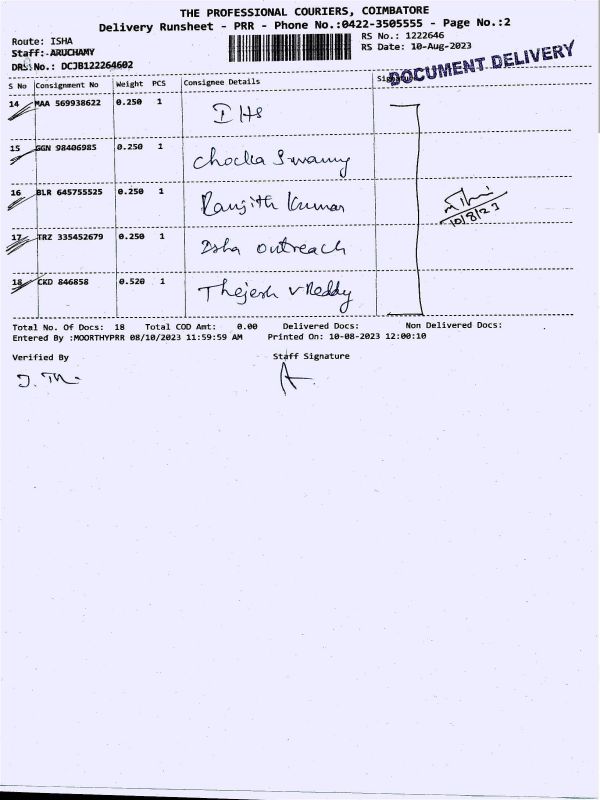 THE PROFESSIONAL COURIERS, COIMBATORE
Delivery Runsheet - PRR - Phone No.:0422-3505555 - Page No.:2
Route: ISHA
RS No.: 1222646
Staff:-ARUCHAMY
RS Date: 10-Aug-2023
DRS No.: DCJB122264602
DOCUMENT DELIVERY
S No Consignment No Weight PCS Consignee Details
14 MAA 569938622 0.250 1 IHS
15 GGN 98406985 0.250 1 Chocka Swamy
16 BLR 645755525 0.250 1 Ranjith Kumar
10/8/23
17 TRZ 335452679 0.250 1 Isha outreach
18 CKD 846858 0.520 1 Thejesh V Reddy
Total No. Of Docs: 18 Total COD Amt: 0.00 Delivered Docs: Non Delivered Docs:
Entered By :MOORTHYPRR 08/10/2023 11:59:59 AM Printed On: 10-08-2023 12:00:10
Verified By Staff Signature